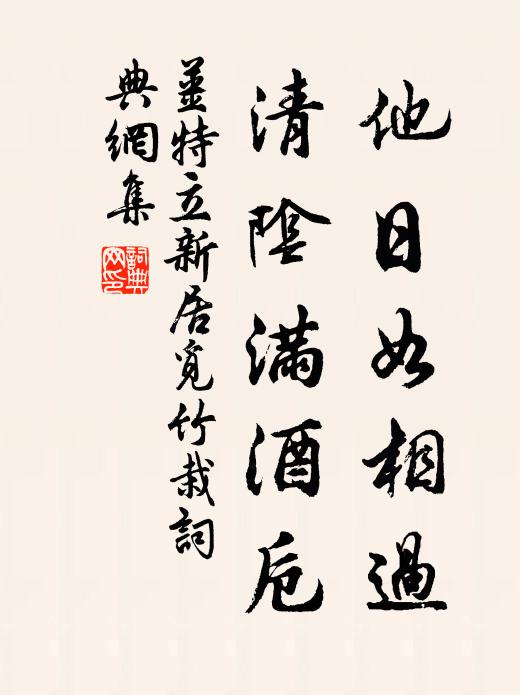 他日如相過
清陰滿酒卮
薑特立新居覓竹栽詞
典網集
詞典網印